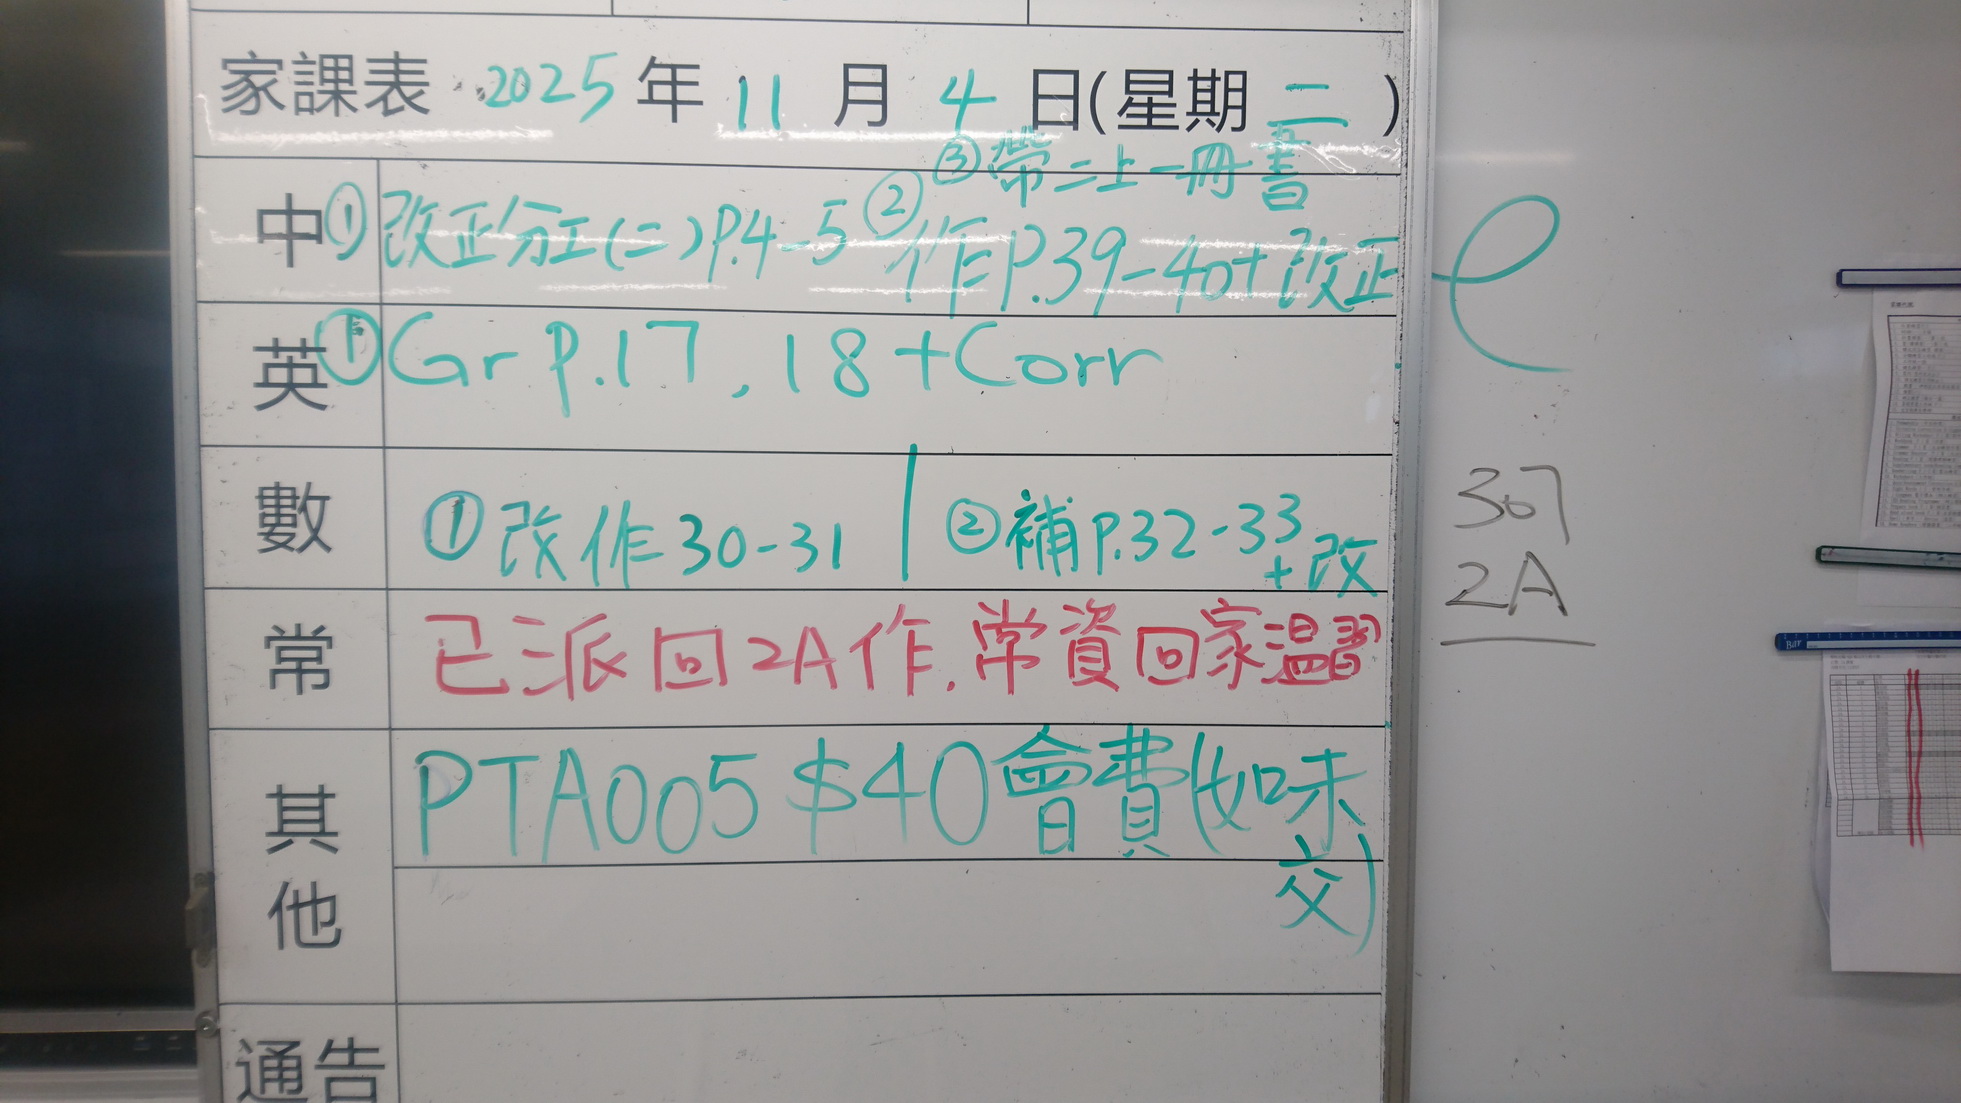 家課表 2025年11月4日(星期二)
③帶二上一冊書
中 ①改正分工(二)P.4-5 ②作P.39-40+改正
英 ①Gr P.17, 18 +Corr
數 ①改作30-31 | ②補P.32-33+改
常 已派回2A作.常資回家溫習
其他 PTA005 $40會費(如未交)
通告
307
2A
Bdr